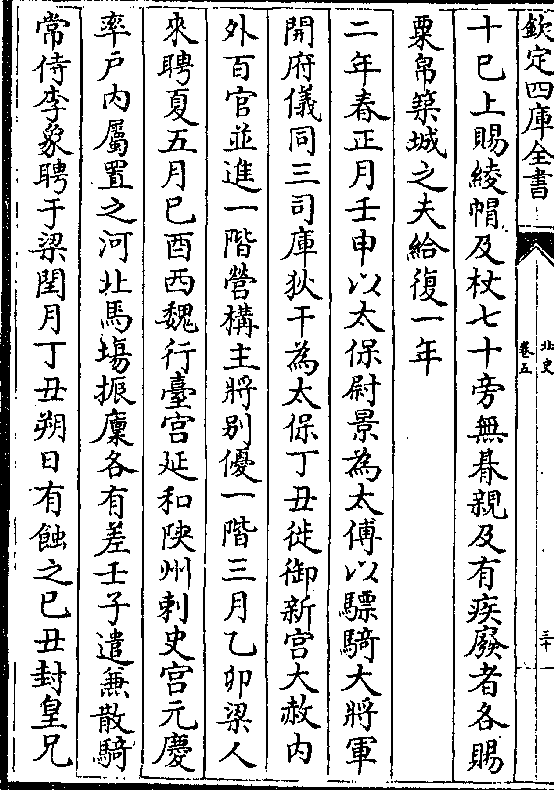 欽定四庫全書
北史
卷五
三十一
十已上賜綾帽及杖七十旁無朞親及有疾廢者各賜
粟帛築城之夫給復一年
二年春正月壬申以太保尉景為太傅以驃騎大將軍
開府儀同三司庫狄干為太保丁丑徙御新宫大赦内
外百官並進一階營構主將别優一階三月乙卯梁人
來聘夏五月巳酉西魏行臺宫延和陜州刺史宫元慶
率戸内屬置之河北馬塲振廩各有差壬子遣兼散騎
常侍李象聘于梁閏月丁丑朔日有蝕之巳丑封皇兄